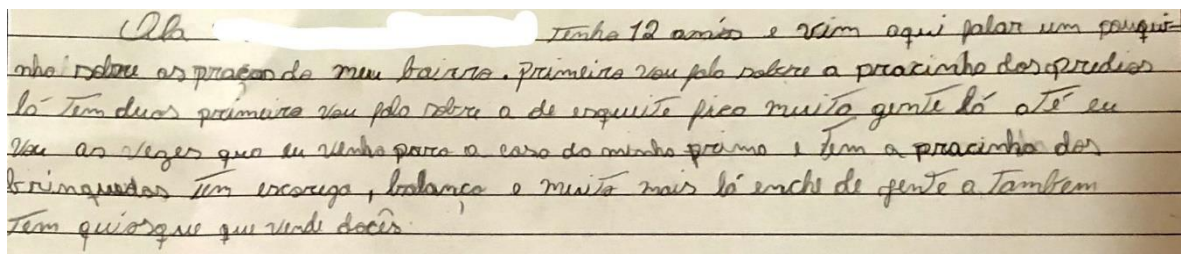 Ola Tenho 12 anos e vim aqui falar um pouqui-
nho sobre as praças do meu bairro. Primeiro vou falo sobre a pracinha dos predios
lá Tem duas primeiro vou falo sobre a de esqueite fica muita gente lá até eu
vou as vezes que eu venho para a casa do minho primo e Tem a pracinha dos
brinquedos Tem escorega, balanço e muito mais lá enche de gente a Tambem
Tem quiosque que vende docês.